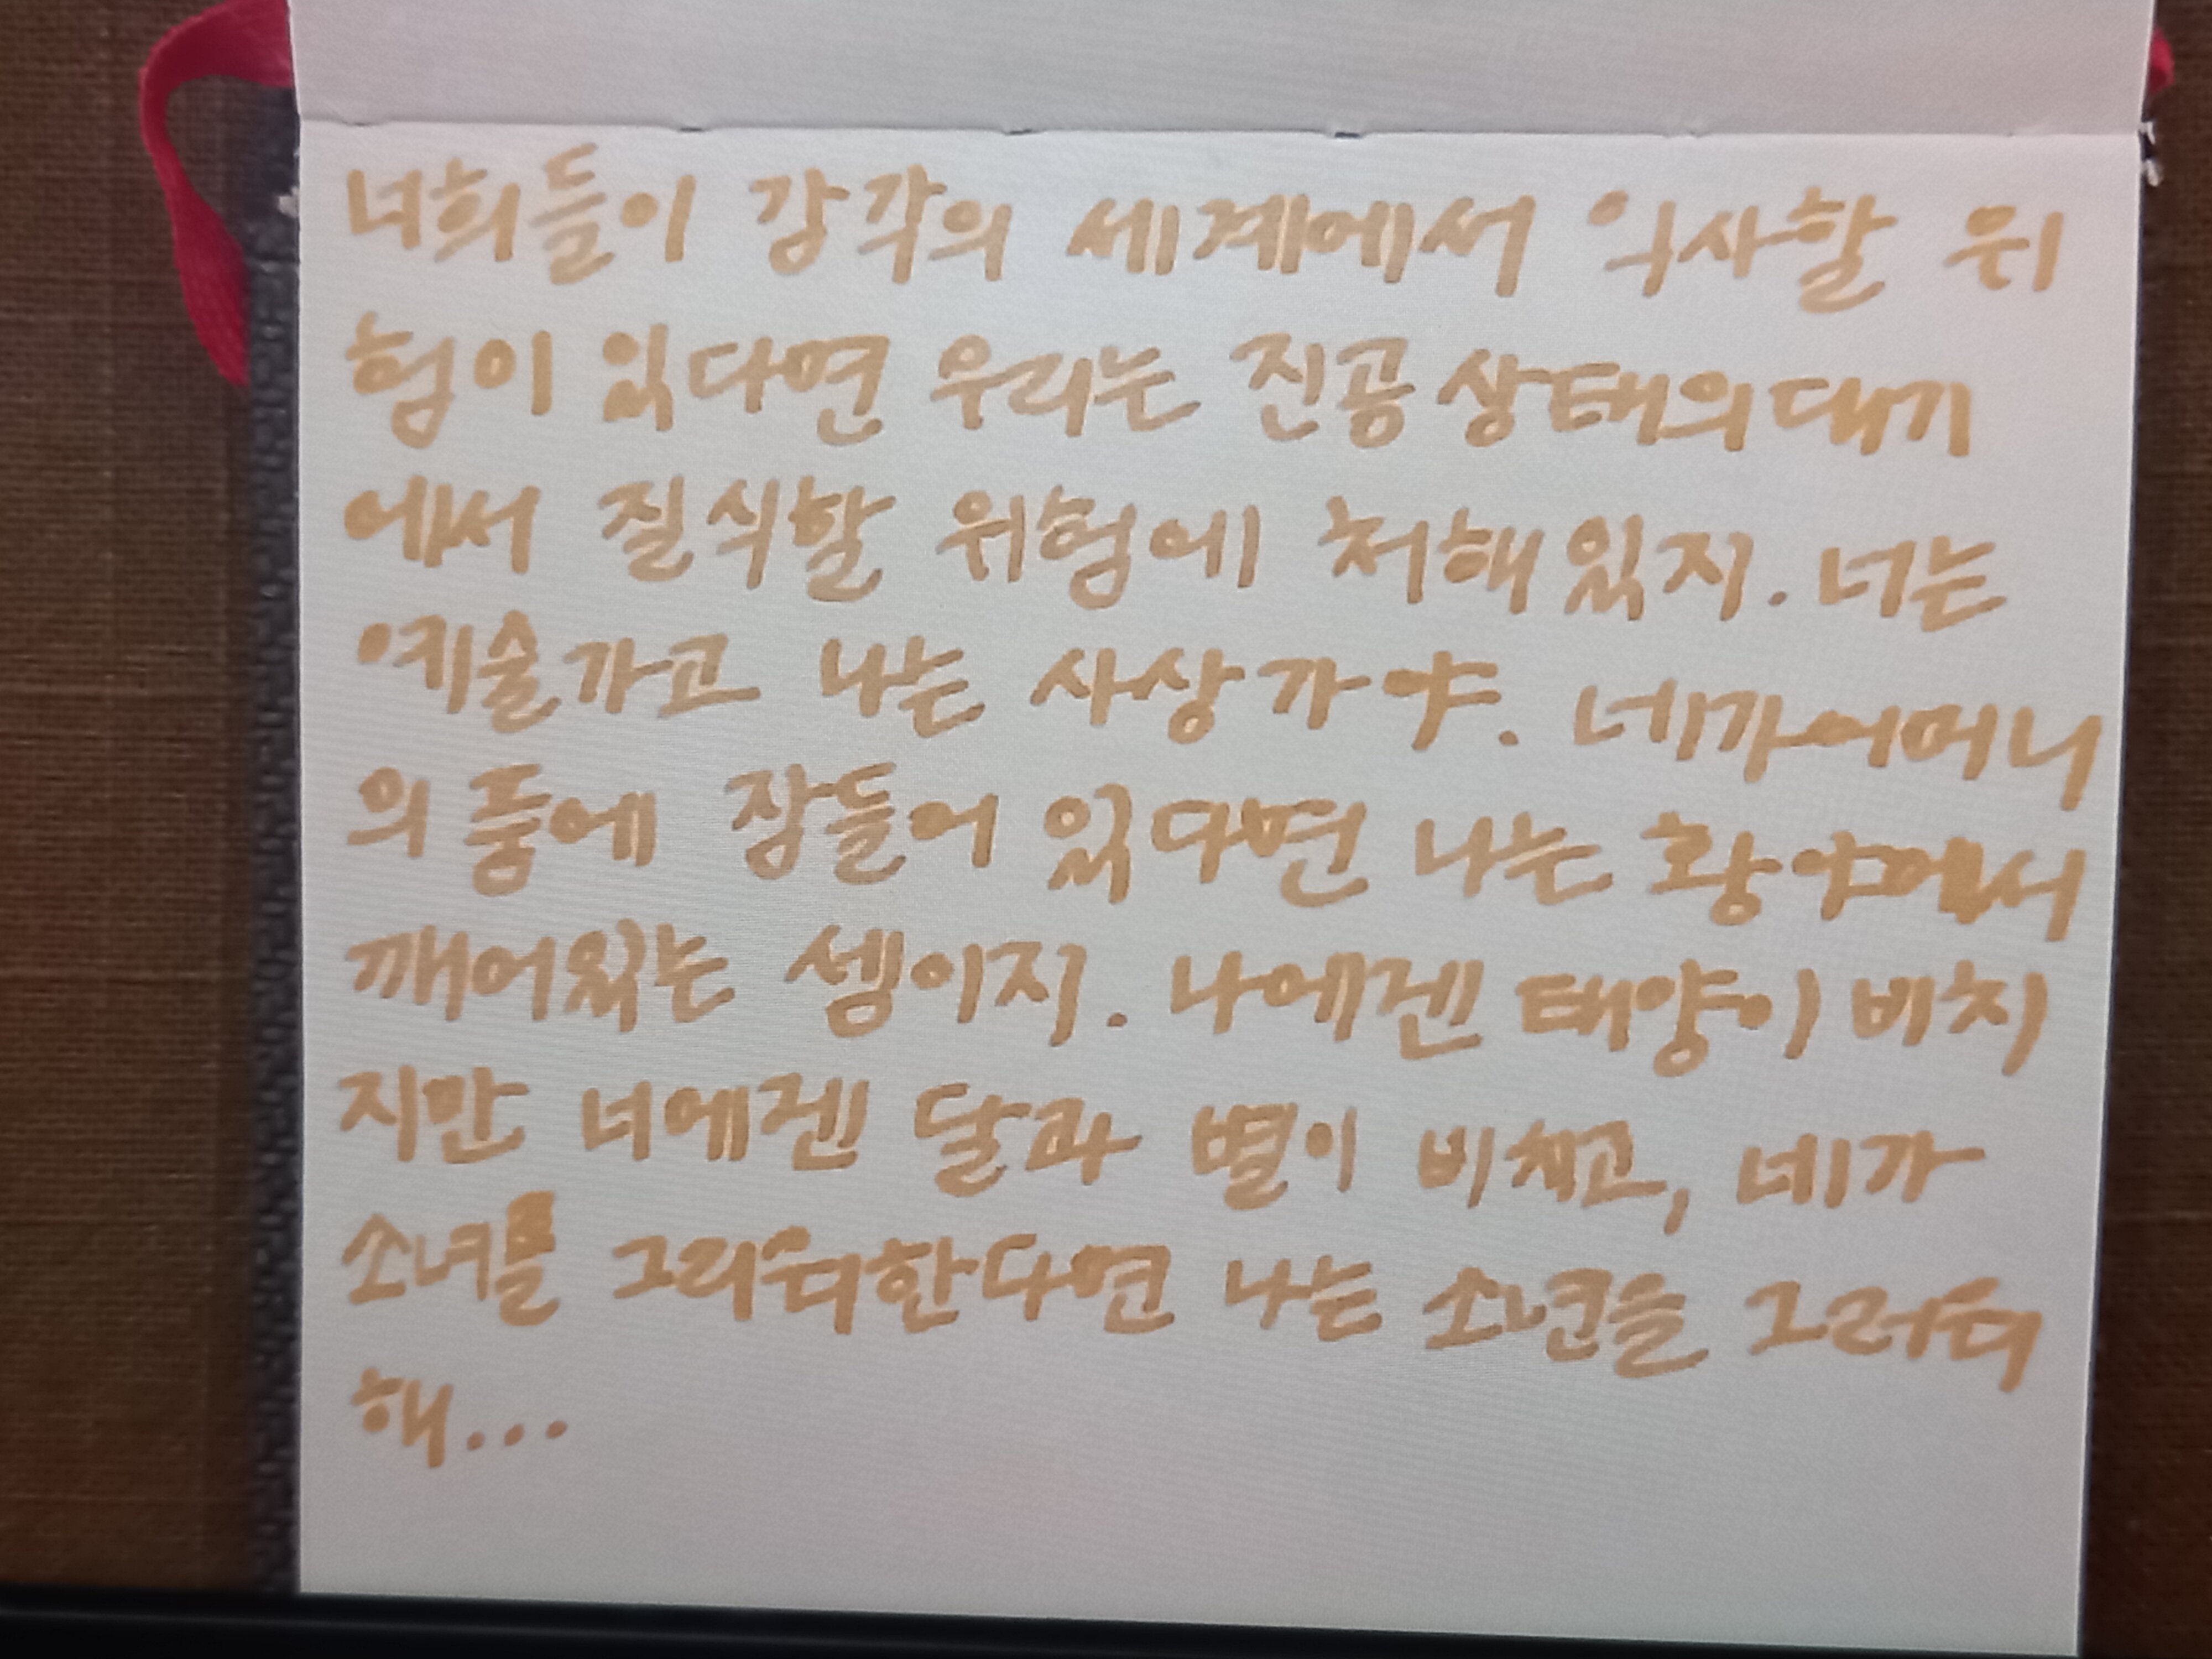 너희들이 감각의 세계에서 익사할 위
험이 있다면 우리는 진공 상태의 대기
에서 질식할 위험에 처해있지. 너는
예술가고 나는 사상가야. 네가 어머니
의 품에 잠들어 있다면 나는 황야에서
깨어있는 셈이지. 나에겐 태양이 비치
지만 너에겐 달과 별이 비치고, 네가
소녀를 그리워한다면 나는 소년을 그리워
해...